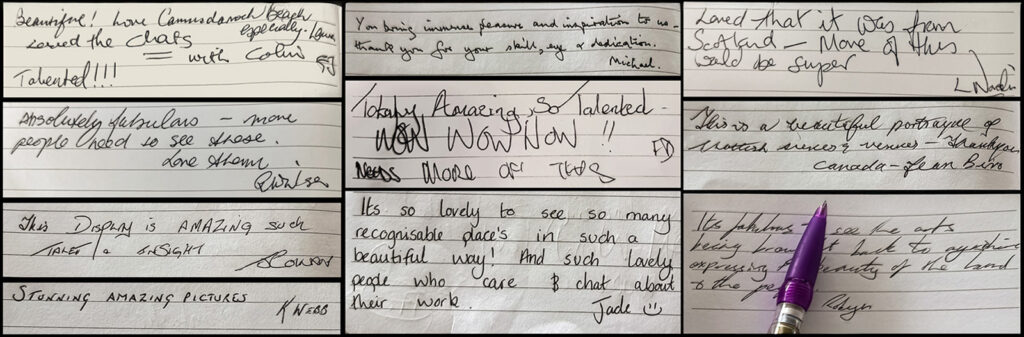 Beautiful! Love Camusdarach Beach
especially.
Loved the chats
with Colin
Talented!!!
Absolutely fabulous – more
people need to see these.
Love them.
This Display is AMAZING such
TALENT & INSIGHT
STUNNING AMAZING PICTURES
K WEBB
You bring immense pleasure and inspiration to us –
thank you for your skill, eye & dedication.
Michael.
Totally Amazing, So Talented –
WOW WOW WOW !!
NEEDS MORE OF THIS
Its so lovely to see so many
recognisable place's in such a
beautiful way! And such lovely
people who care & chat about
their work.
Jade
Loved that it was from
Scotland – More of this
would be super
This is a beautiful portrayal of
Scottish scenes & venues – Thankyou
Canada – Jean
Its fabulous to see the arts
being brought back to
expressing the beauty of the land
& the
Robyn